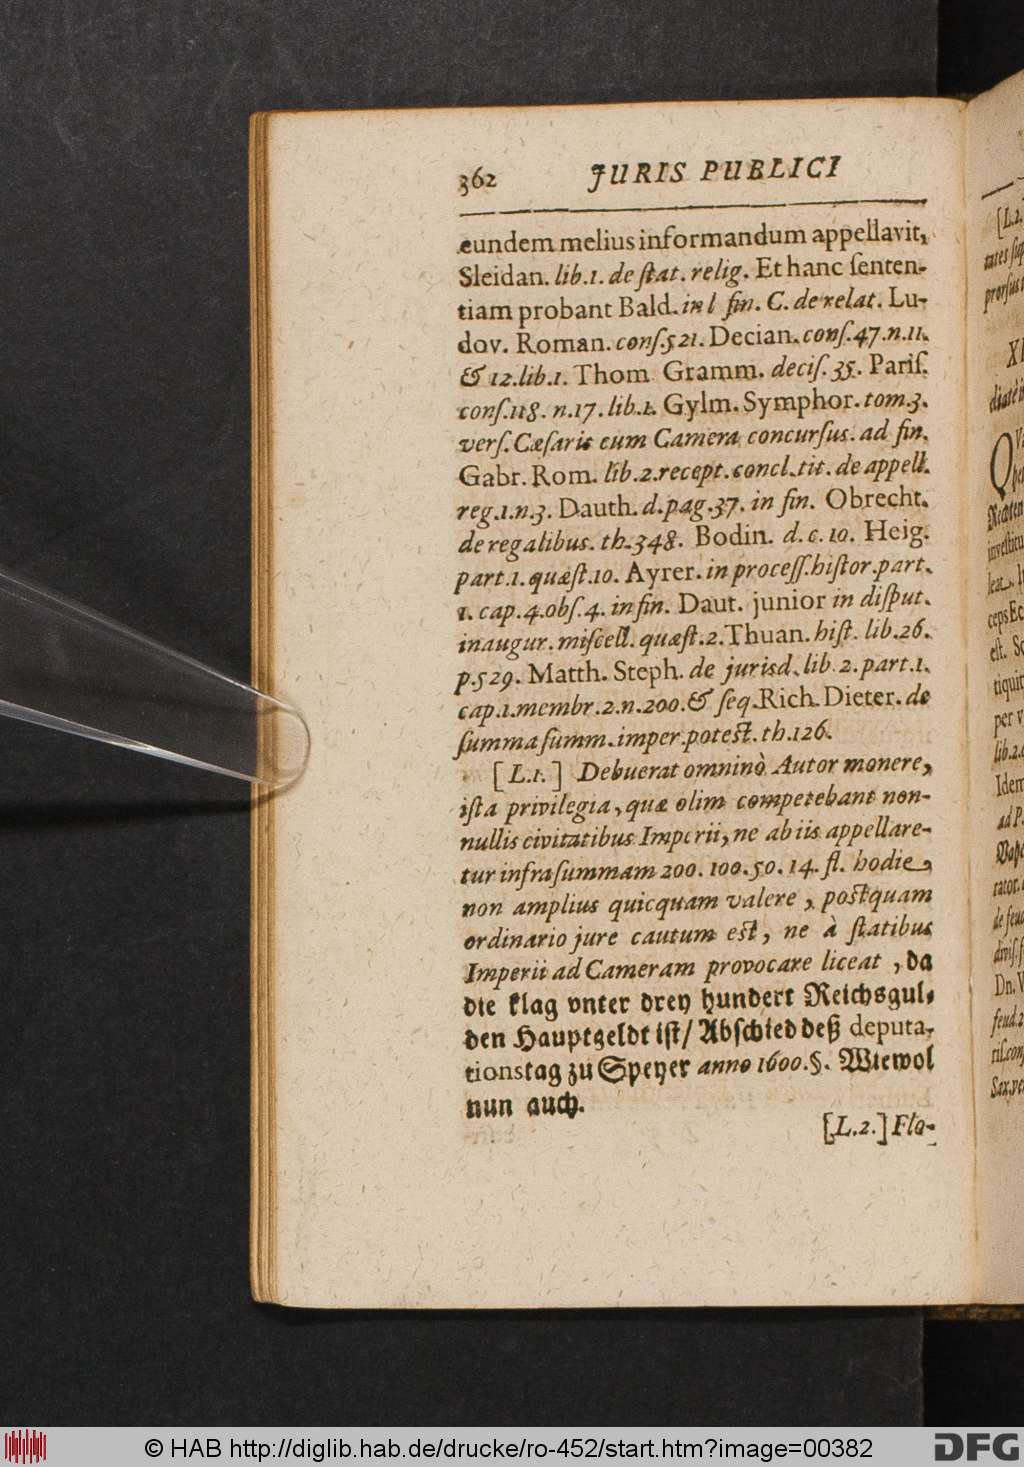 362 JURIS PUBLICI
eundem melius informandum appellavit,
Sleidan. lib.1. de ſtat. relig. Et hanc ſenten-
tiam probant Bald. in l fin. C. de relat. Lu-
dov. Roman. conſ.521. Decian. conſ.47.n.11.
& 12.lib.1. Thom Gramm. deciſ.35. Pariſ.
conſ.118. n.17. lib.1. Gylm. Symphor. tom.3.
verſ. Cæſaris cum Camera concurſus. ad fin.
Gabr. Rom. lib.2.recept.concl.tit. de appell.
reg.1.n.3. Dauth. d.pag.37. in fin. Obrecht.
de regalibus. th.348. Bodin. d.c.10. Heig.
part.1.quæſt.10. Ayrer. in proceſſ.hiſtor.part.
1. cap.4.obſ.4. in fin. Daut. junior in diſput.
inaugur. miſcell. quæſt.2. Thuan. hiſt. lib.26.
p.529. Matth. Steph. de jurisd. lib 2.part.1.
cap.1.membr.2.n.200.& ſeq. Rich. Dieter. de
ſumma ſumm.imper.poteſt.th.126.
[L.1.] Debuerat omninò Autor monere,
iſta privilegia, quæ olim competebant non-
nullis civitatibus Imperii, ne ab iis appellare-
tur infra ſummam 200. 100. 50. 14. fl. hodie,
non amplius quicquam valere, poſtquam
ordinario jure cautum eſt, ne à ſtatibus
Imperii ad Cameram provocare liceat, da
die klag vnter drey hundert Reichsgul-
den Hauptgeldt iſt/ Abſchied deß deputa-
tionstag zu Speyer anno 1600.§. Wiewol
nun auch.
[L.2.] Flo-
[L.2.
XI
diatè i
Rechten
inveſtitu
leat.
ceps Ec
eſt. S
tiquit
per v
lib.2.
Idem
ad P.
rator.
de feud
diviſ.f
Dn. V
feud.2
© HAB http://diglib.hab.de/drucke/ro-452/start.htm?image=00382
DFG